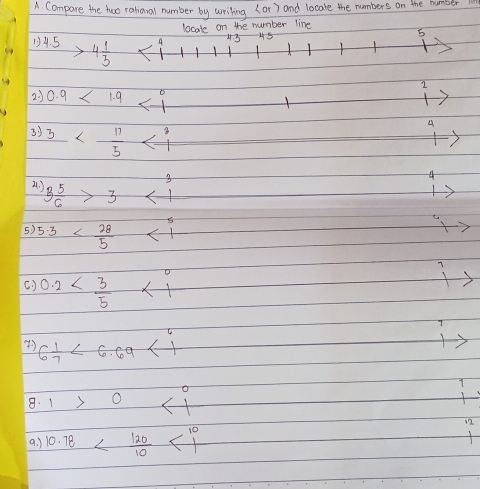 A. Compare the two rational number by writing < or > and locate the numbers on the number line
locate on the number line
1) 4.5 > 4 1/3 4 4.3 4.5 5
2.) 0.9 < 1.9 0 2
3.) 3 < 17/5 3 4
4.) 3 5/6 > 3 3 4
5) 5.3 < 28/5 5 6
6.) 0.2 < 3/5 0 1
7.) 6 1/7 < 6.69 6 7
8. 1 > 0 0 1
9.) 10.78 < 120/10 10 12